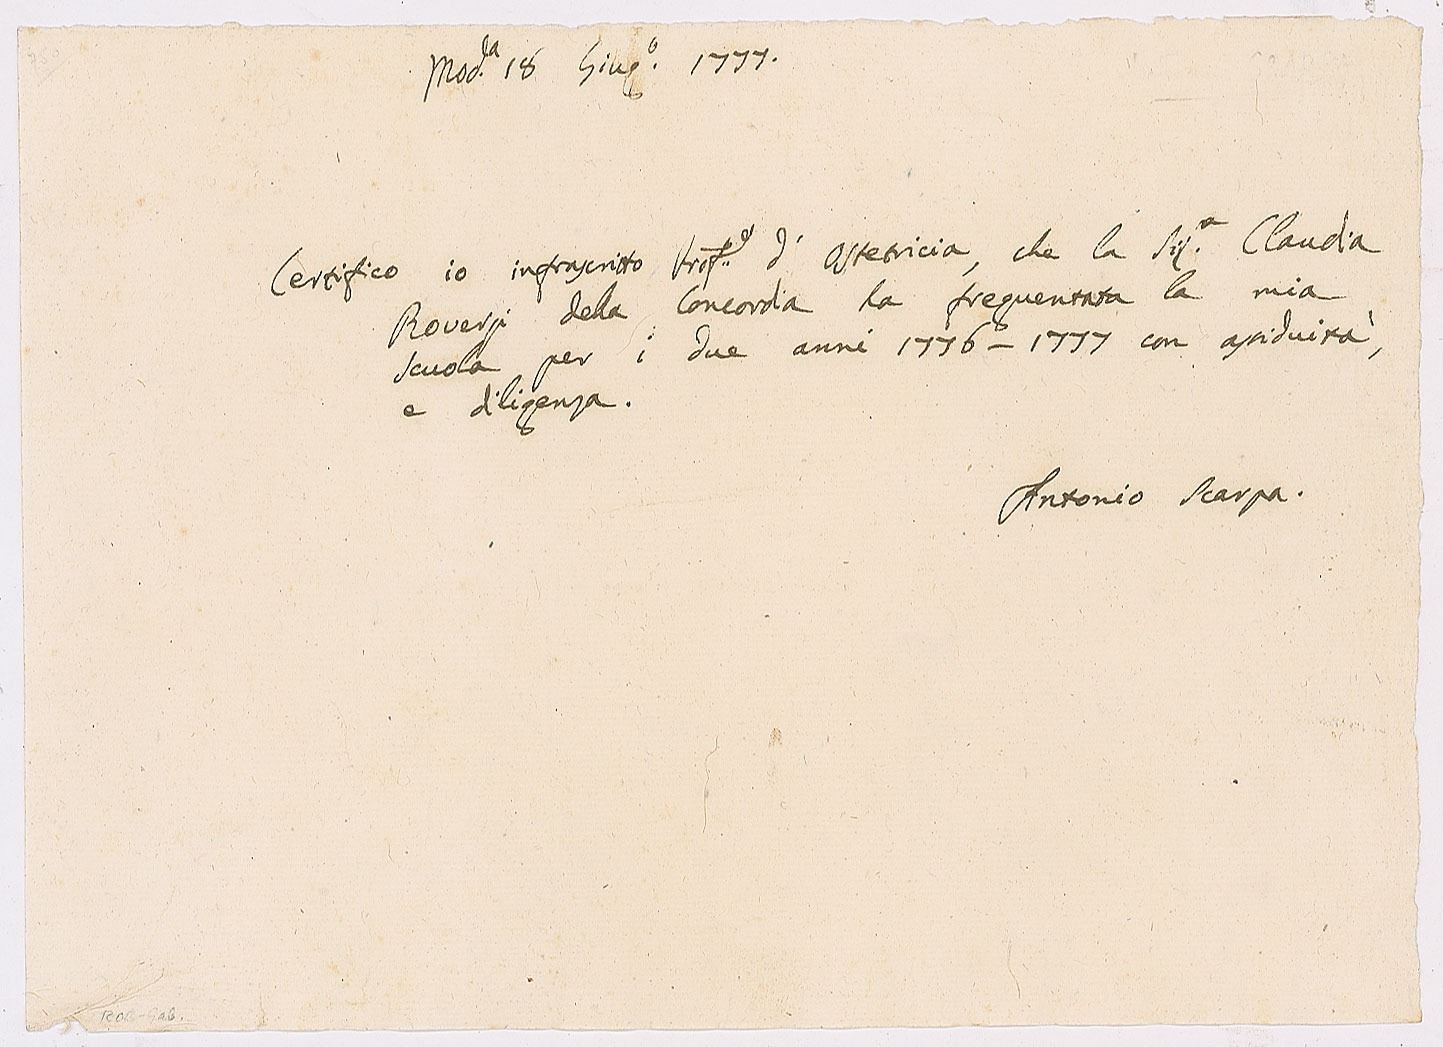 Mod.da 18 Giug.o 1777.
Certifico io infrascritto Prof.e d'Ostetricia, che la Sig.a Claudia
Roversi della Concordia ha frequentata la mia
scuola per i due anni 1776 - 1777 con assiduità,
e diligenza.
Antonio Scarpa.